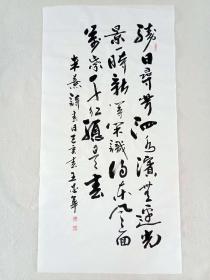 勝日尋芳泗水濱無邊光
景一時新等閒識得東風面
萬紫千紅總是春
朱熹詩春日己亥王